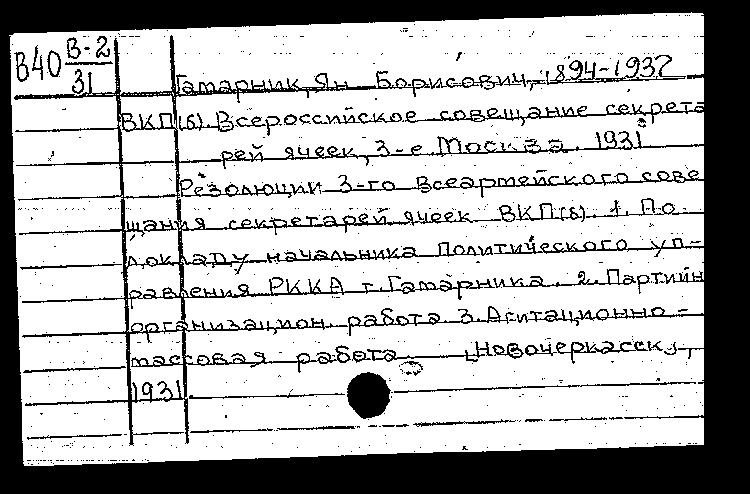 В40 В-2
31
Гамарник, Ян Борисович, 1894-1937
ВКП(б). Всероссийское совещание секрета
рей ячеек, 3-е. Москва. 1931
Резолюции 3-го Всеармейского сове
щания секретарей ячеек ВКП(б). 1. По
докладу начальника Политического уп-
равления РККА т. Гамарника. 2. Партийн
организацион. работа 3. Агитационно-
массовая работа. [Новочеркасск],
1931.